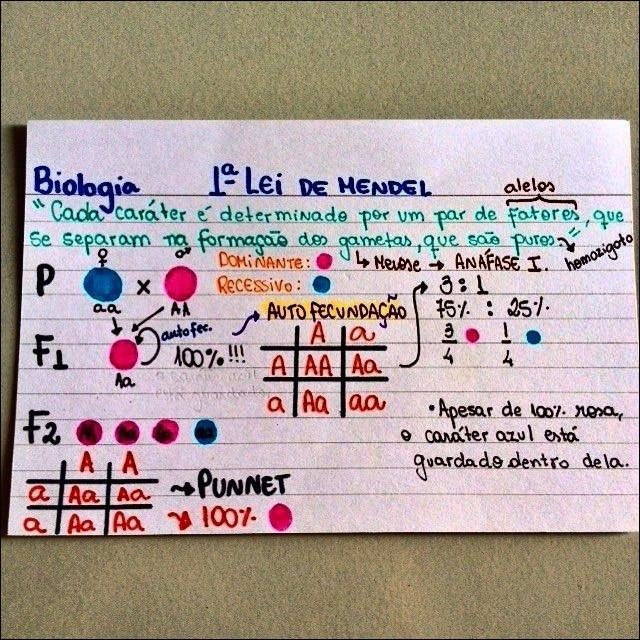 Biologia 1ª LEI DE MENDEL
alelos
"Cada caráter é determinado por um par de fatores, que
se separam na formação dos gametas, que são puros."
homozigoto
DOMINANTE:
↳ MEIOSE → ANÁFASE I.
RECESSIVO:
P ♀ × ♂
aa AA
F1 autofec.
100% !!!
Aa
AUTO FECUNDAÇÃO
A a
A AA Aa
a Aa aa
3 : 1
75% : 25%
3/4 1/4
• Apesar de 100% rosa,
o caráter azul está
guardado dentro dela.
F2
A A
a Aa Aa
a Aa Aa
→ PUNNET
→ 100%